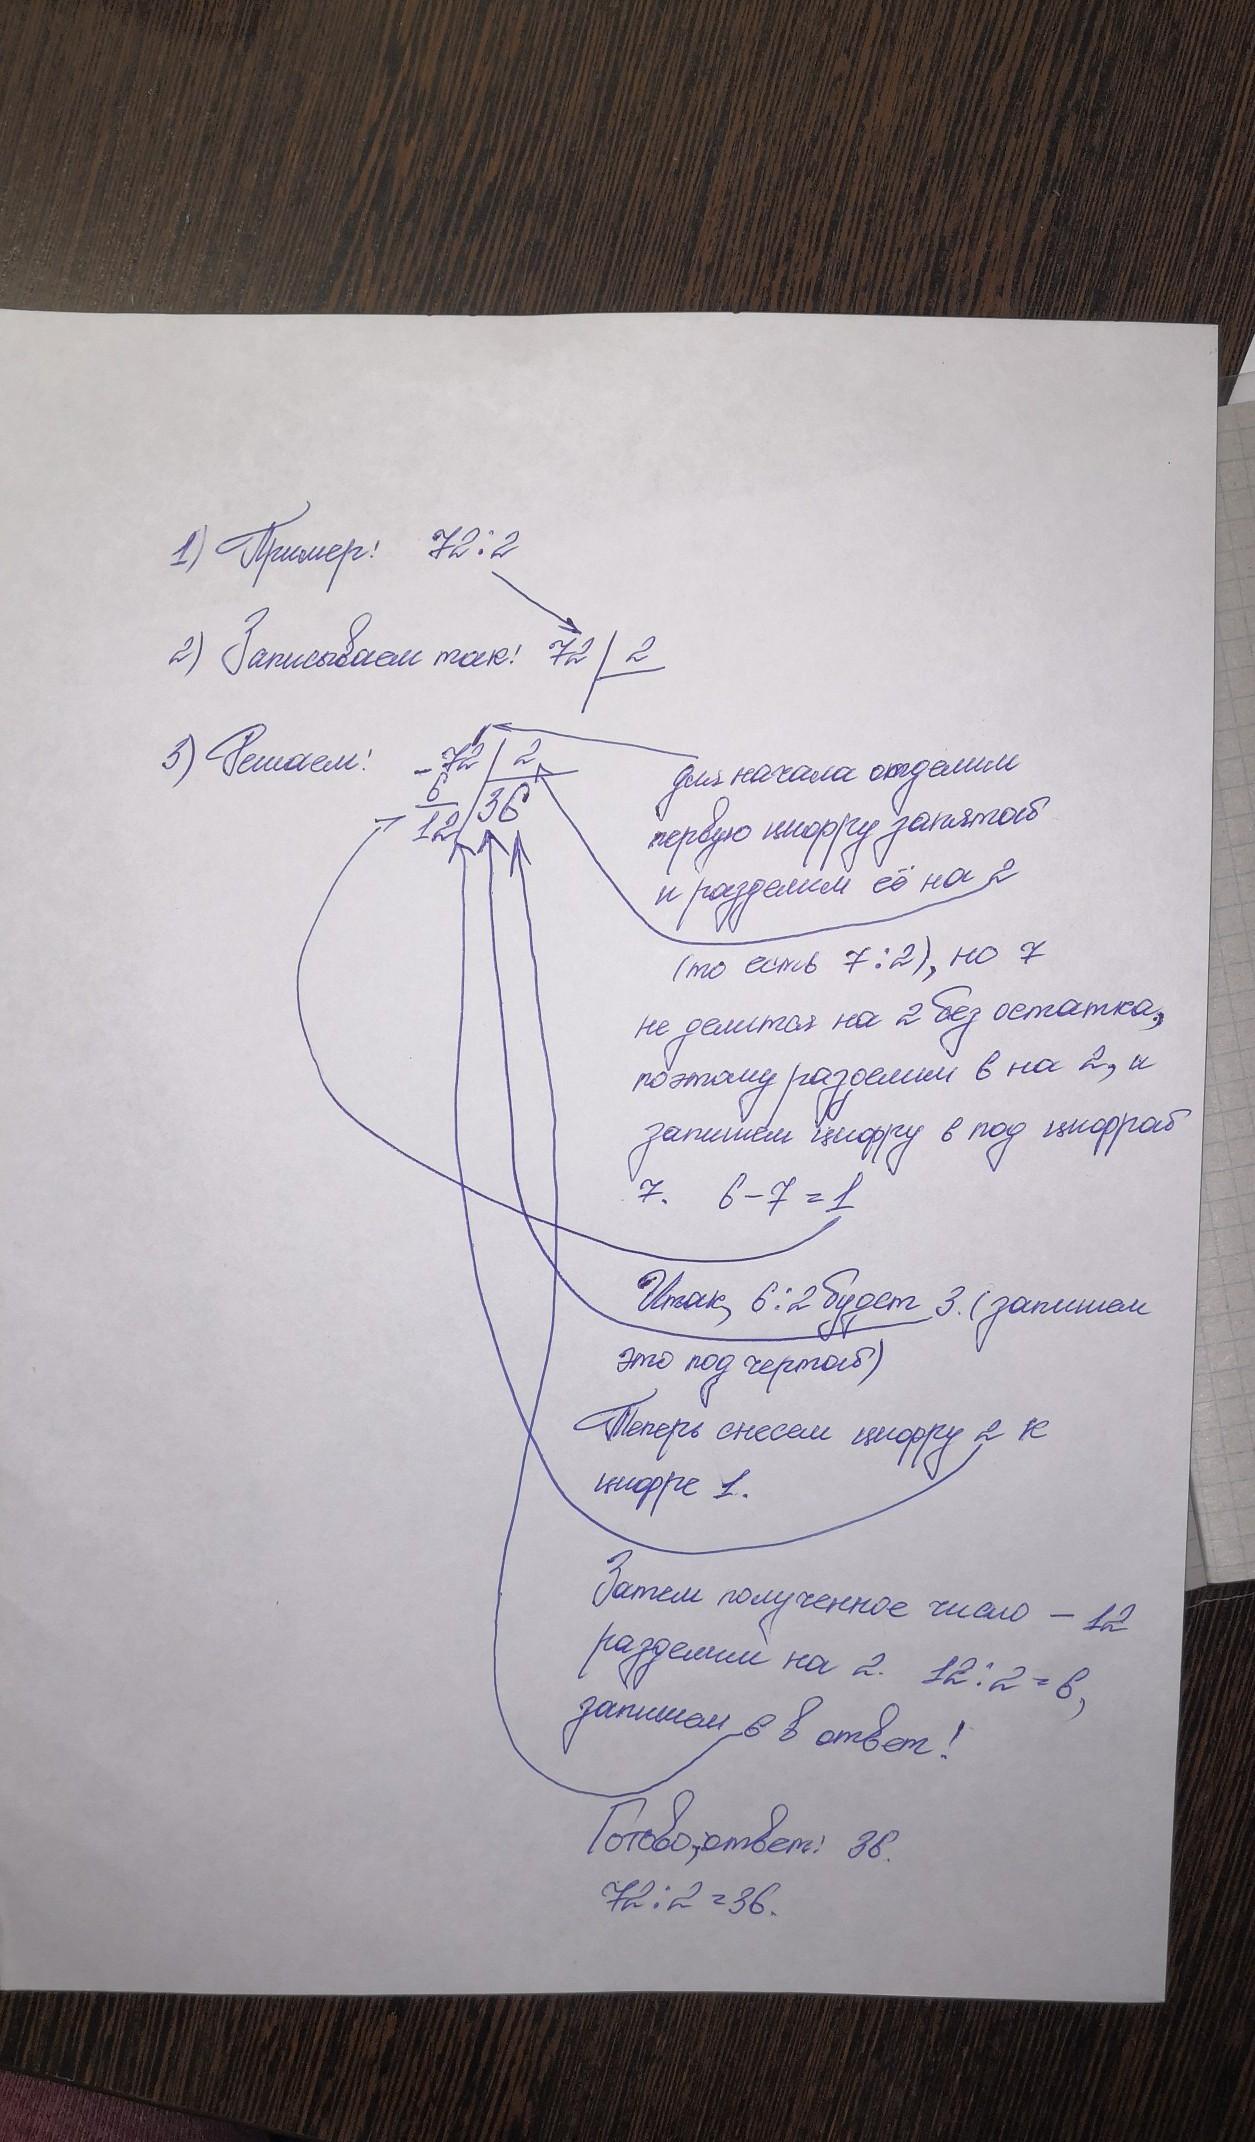 1) Пример: 72:2
2) Записываем так: 72 | 2
3) Решаем: -72 | 2
6 | 36
12
для начала отделим
первую цифру запятой
и разделим её на 2
(то есть 7:2), но 7
не делится на 2 без остатка,
поэтому разделим 6 на 2, и
запишем цифру 6 под цифрой
7. 6-7=1
Итак, 6:2 будет 3. (запишем
это под чертой)
Теперь снесем цифру 2 к
цифре 1.
Затем полученное число - 12
разделим на 2. 12:2=6,
запишем 6 в ответ!
Готово, ответ: 36.
72:2=36.